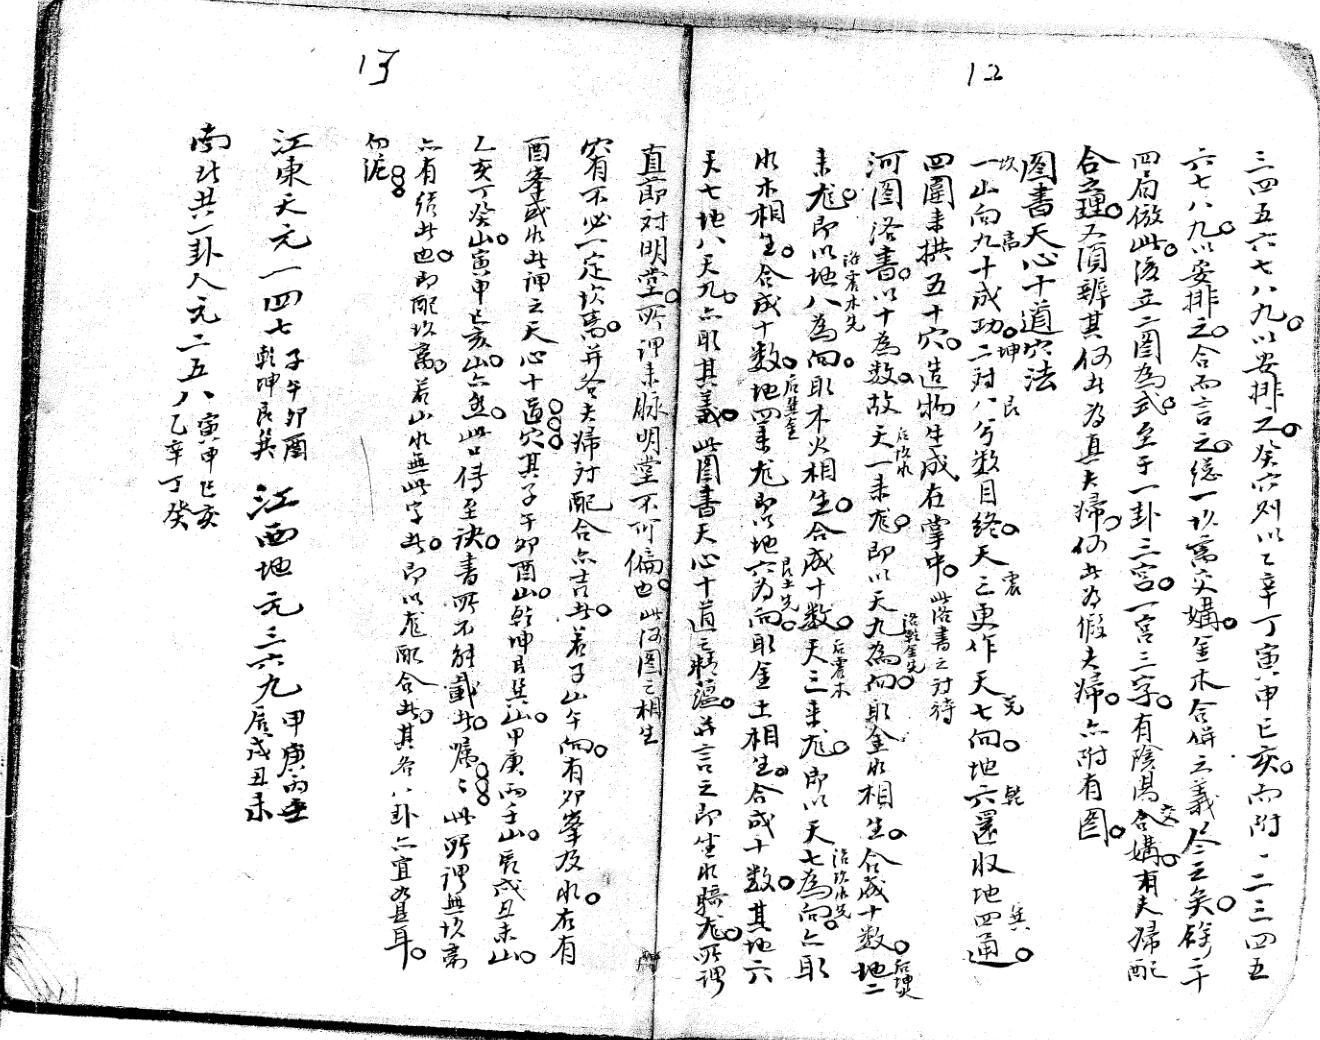 12
三四五六七八九以安排之癸穴則以乙辛丁寅申巳亥而附一二三四五
六七八九以安排之合而言之總一坎离交媾金木合併之義尽之矣餘二十
四局倣此後立二圖為式至于一卦三宮一宮三字有陰陽交合媾有夫婦配
合之理又須辨其何者為真夫婦何者為假夫婦亦附有圖
圖書天心十道穴法
坎 离 坤 艮 震 兌 乾 巽
一山向九十成功二対八兮数目終天三更作天七向地六還収地四通
四圍来拱五十穴造物生成在掌中此洛書之対待
河圖洛書以十為数故天一来龙即以天九為向取金水相生合成十数地二
后坎水 洛乾金先 后坤火
来龙即以地八為向取木火相生合成十数天三来龙即以天七為向亦取
洛震木先 后震木 洛坎水先
水木相生合成十数地四来龙即以地六為向取金土相生合成十数其地六
后巽金 艮土先
天七地八天九亦取其義此圖書天心十道之精蕴井言之即生水騎龙所謂
13
直節対明堂所謂来脉明堂不可偏也此河圖之相生
穴有不必一定坎离并各夫婦対配合亦吉者若子山午向有卯峯及水左有
酉峯或水者謂之天心十道穴其子午卯酉山乾坤艮巽山甲庚丙壬山辰戌丑未山
乙辛丁癸山寅申巳亥山亦然此口傳至訣書所不能載者嘱々此所謂無坎离
亦有結者也即配坎离若山水無此字者即以龙配合者其各八卦亦宜為是耳
勿泥
江東天元一四七 子午卯酉 乾坤艮巽 江西地元三六九 甲庚丙壬 辰戌丑未
南北共一卦人元二五八 寅申巳亥 乙辛丁癸